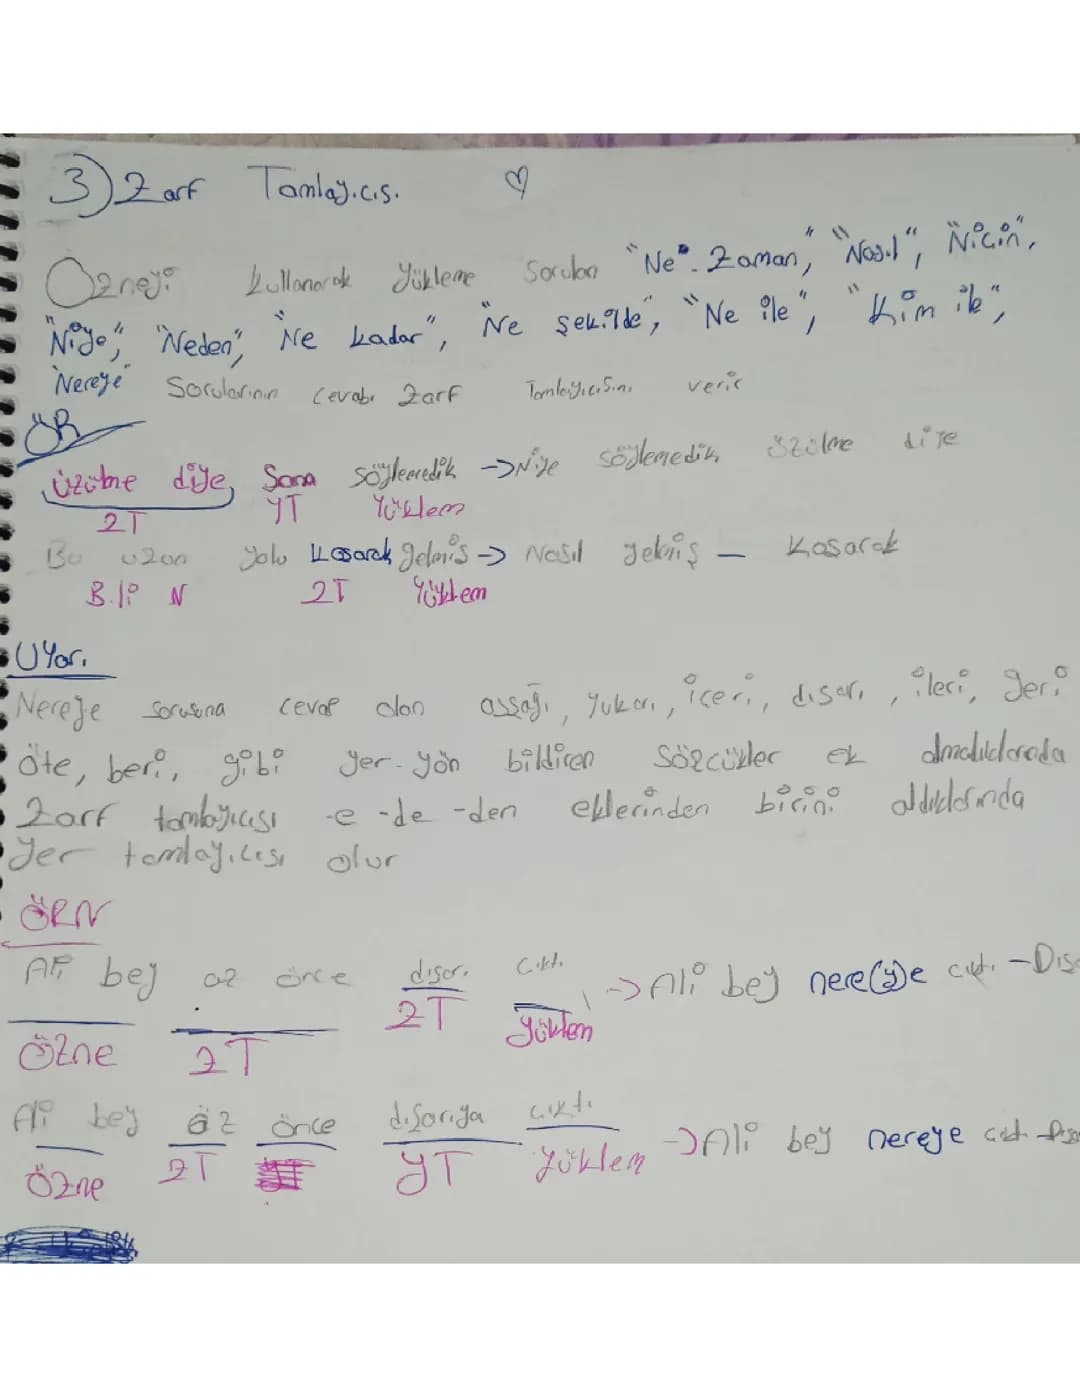 3) Zarf Tamlayıcısı
Özneyi kullanarak Yükleme Sorulan "Ne Zaman", "Nasıl", "Niçin",
"Niye", "Neden", "Ne kadar", "Ne şekilde", "Ne ile", "Kim ile",
"Nereye" Sorularının cevabı Zarf Tamlayıcısını verir
ÖR
üzülme diye Sana söylemedik -> Niye söylemedik üzülme diye
ZT YT Yüklem
Bu uzun yolu koşarak gelmiş -> Nasıl gelmiş - Koşarak
B.li N ZT Yüklem
Uyarı
Nereye sorusuna cevap olan assağı, yukarı, içeri, dışarı, ileri, geri
öte, beri, gibi yer-yön bildiren sözcükler ek almadıklarında
Zarf tamlayıcısı -e -de -den eklerinden birini aldıklarında
Yer tamlayıcısı olur
ÖRN
Ali bey az önce dışarı çıktı -> Ali bey nere(y)e çıktı -
Özne ZT ZT Yüklem
Ali bey az önce dışarıya çıktı -> Ali bey nereye çıktı -
Özne ZT YT Yüklem